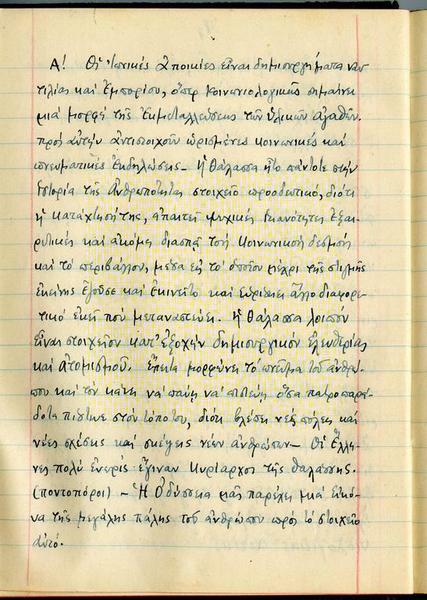 Α! Οἱ Ἰωνικές ἀποικίες εἶναι δημιουργήματα ναυ-
τιλίας καί ἐμπορίου, ὅπερ κοινωνιολογικῶς σημαίνει
μιά μορφή τῆς ἐκμεταλλεύσεως τῶν ὑλικῶν ἀγαθῶν.
πρός αὐτήν ἀντιστοιχοῦν ὡρισμένες κοινωνικές καί
πνευματικές ἐκδηλώσεις – ἡ θάλασσα ἦτο πάντοτε στήν
ἱστορία τῆς ἀνθρωπότητος στοιχεῖο προοδευτικό, διότι
ἡ κατάχτησή της, ἀπαιτεῖ ψυχικές ἱκανότητες ἐξαι-
ρετικές καί ἀκόμη διασπᾶ τούς κοινωνικούς δεσμούς
καί τό περιβάλλον, μέσα εἰς τό ὁποῖον μέχρι τῆς στιγμῆς
ἐκείνης ἐζοῦσε καί ἐκινεῖτο καί εὑρίσκει ἄλλο διαφορε-
τικό ἐκεῖ πού μεταναστεύει. Ἡ θάλασσα λοιπόν
εἶναι στοιχεῖον κατ' ἐξοχήν δημιουργικόν ἐλευθερίας
καί ἀτομισμοῦ. Ἔπειτα μορφώνει τό πνεῦμα τοῦ ἀνθρώ-
που καί τόν κάνει νά παύῃ νά πιστεύῃ ὅσα πατροπαρά-
δοτα πίστευε στόν τόπο του, διότι βλέπει νέες πόλεις καί
νέες σχέσεις καί σκέψεις νέων ἀνθρώπων – Οἱ Ἕλλη-
νες πολύ ἐνωρίς ἔγιναν κυρίαρχοι τῆς θαλάσσης.
(ποντοπόροι) – Ἡ Ὀδύσσεια μᾶς παρέχει μιά εἰκό-
να τῆς μεγάλης πάλης τοῦ ἀνθρώπου πρός τό στοιχεῖο
αὐτό.